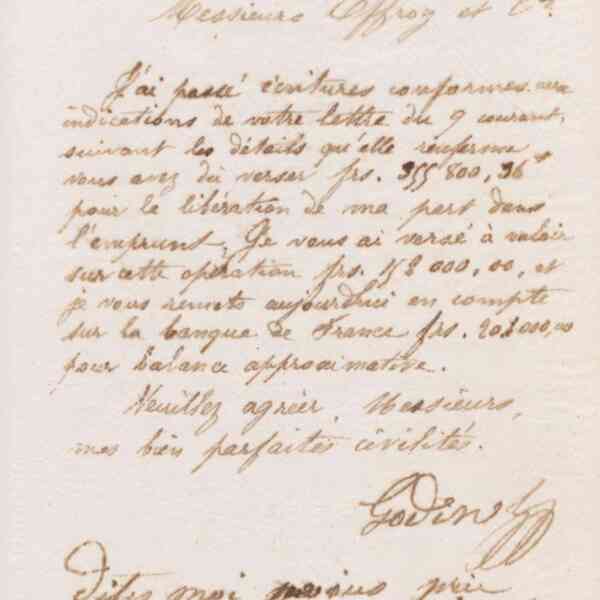 Messieurs Offroy et Cie
J'ai passé écritures conformes aux
indications de votre lettre du 9 courant,
suivant les détails qu'elle renferme
vous avez dû verser frs. 355 800,36
pour la libération de ma part dans
l'emprunt. Je vous ai versé à valoir
sur cette opération frs. 152 000,00, et
je vous remets aujourdhui en compte
sur la banque de France frs. 203 000,00
pour balance approximative.
Veuillez agréer, Messieurs,
mes bien parfaites civilités.
Godin
Dites moi je vous prie